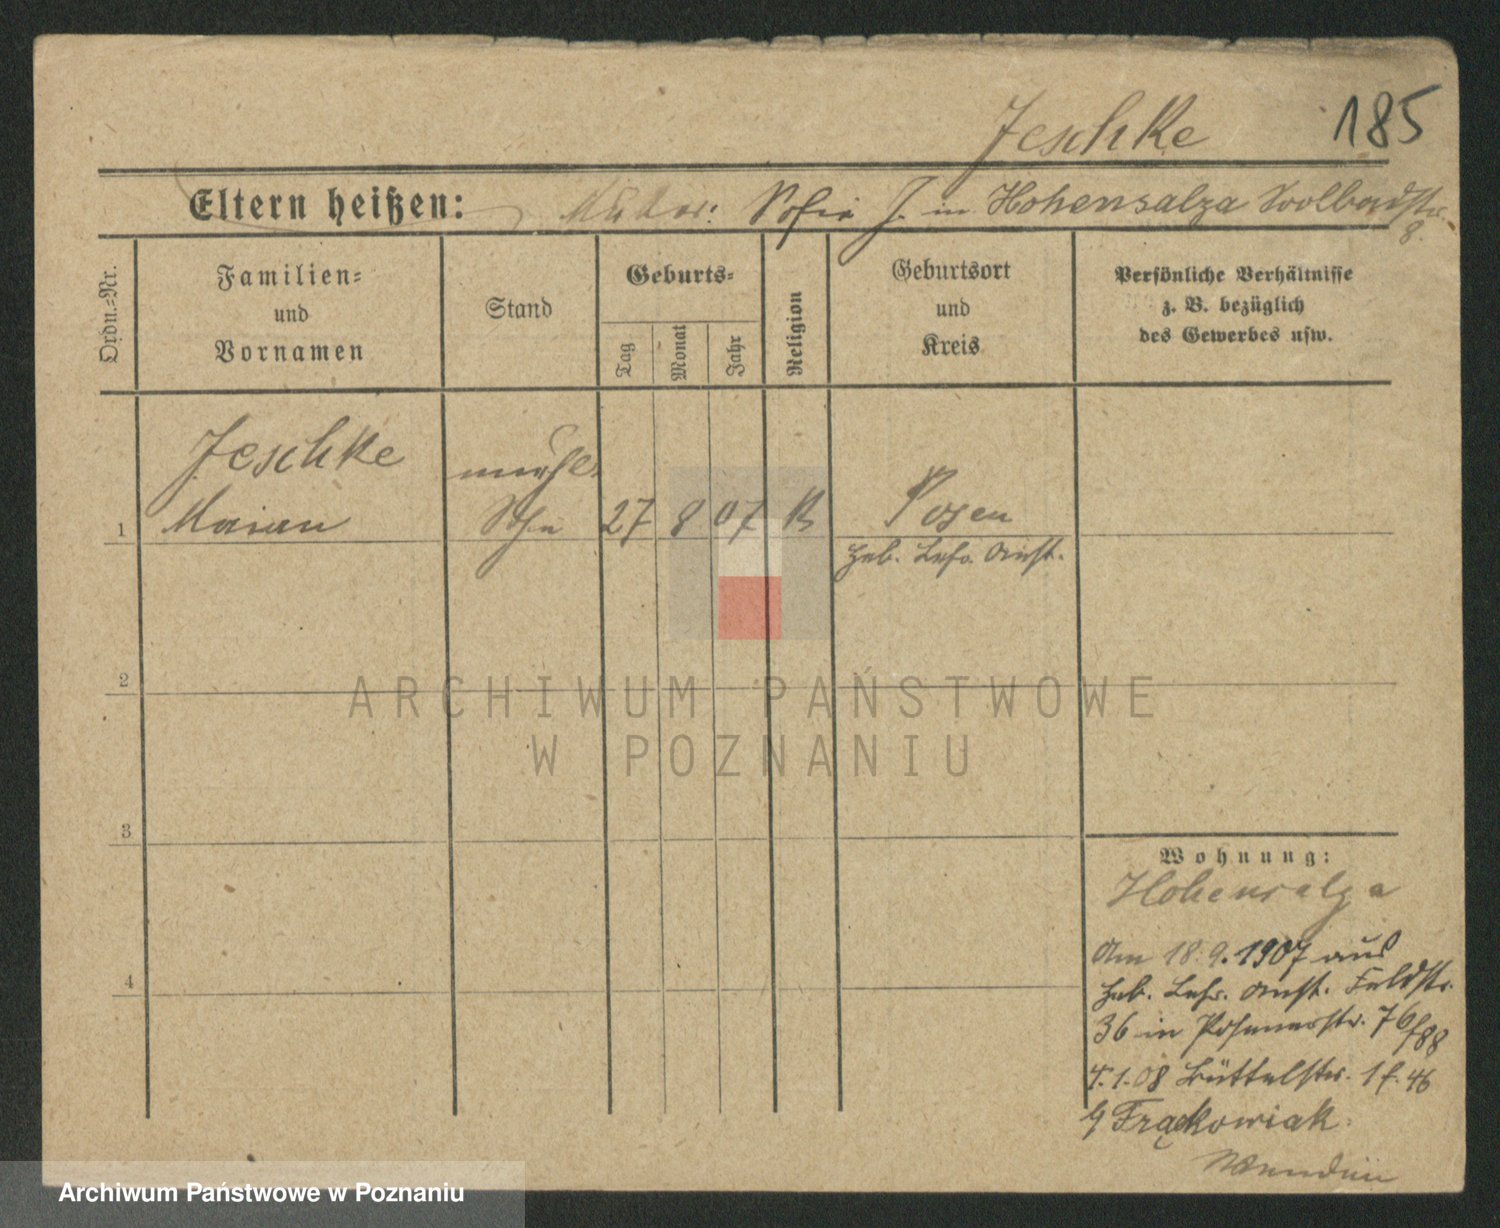 Jeschke 185
Eltern heißen: Mutter: Sofia J. in Hohensalza Soolbadstr.
8.
Ordn.-Nr.
Familien-
und
Vornamen
Stand
Geburts-
Tag
Monat
Jahr
Religion
Geburtsort
und
Kreis
Persönliche Verhältnisse
z. B. bezüglich
des Gewerbes usw.
Jeschke unehel.
1 Marian Sohn 27 8 07 K Posen
Heb. Lehr. Anst.
2
ARCHIWUM PAŃSTWOWE
W POZNANIU
3
Wohnung:
Hohensalza
Am 18.9.1907 aus
Heb. Lehr. Anst. Feldstr.
4
36 in Posenerstr. 76
4.1.08 Büttelstr. 1
Frąckowiak.
Archiwum Państwowe w Poznaniu